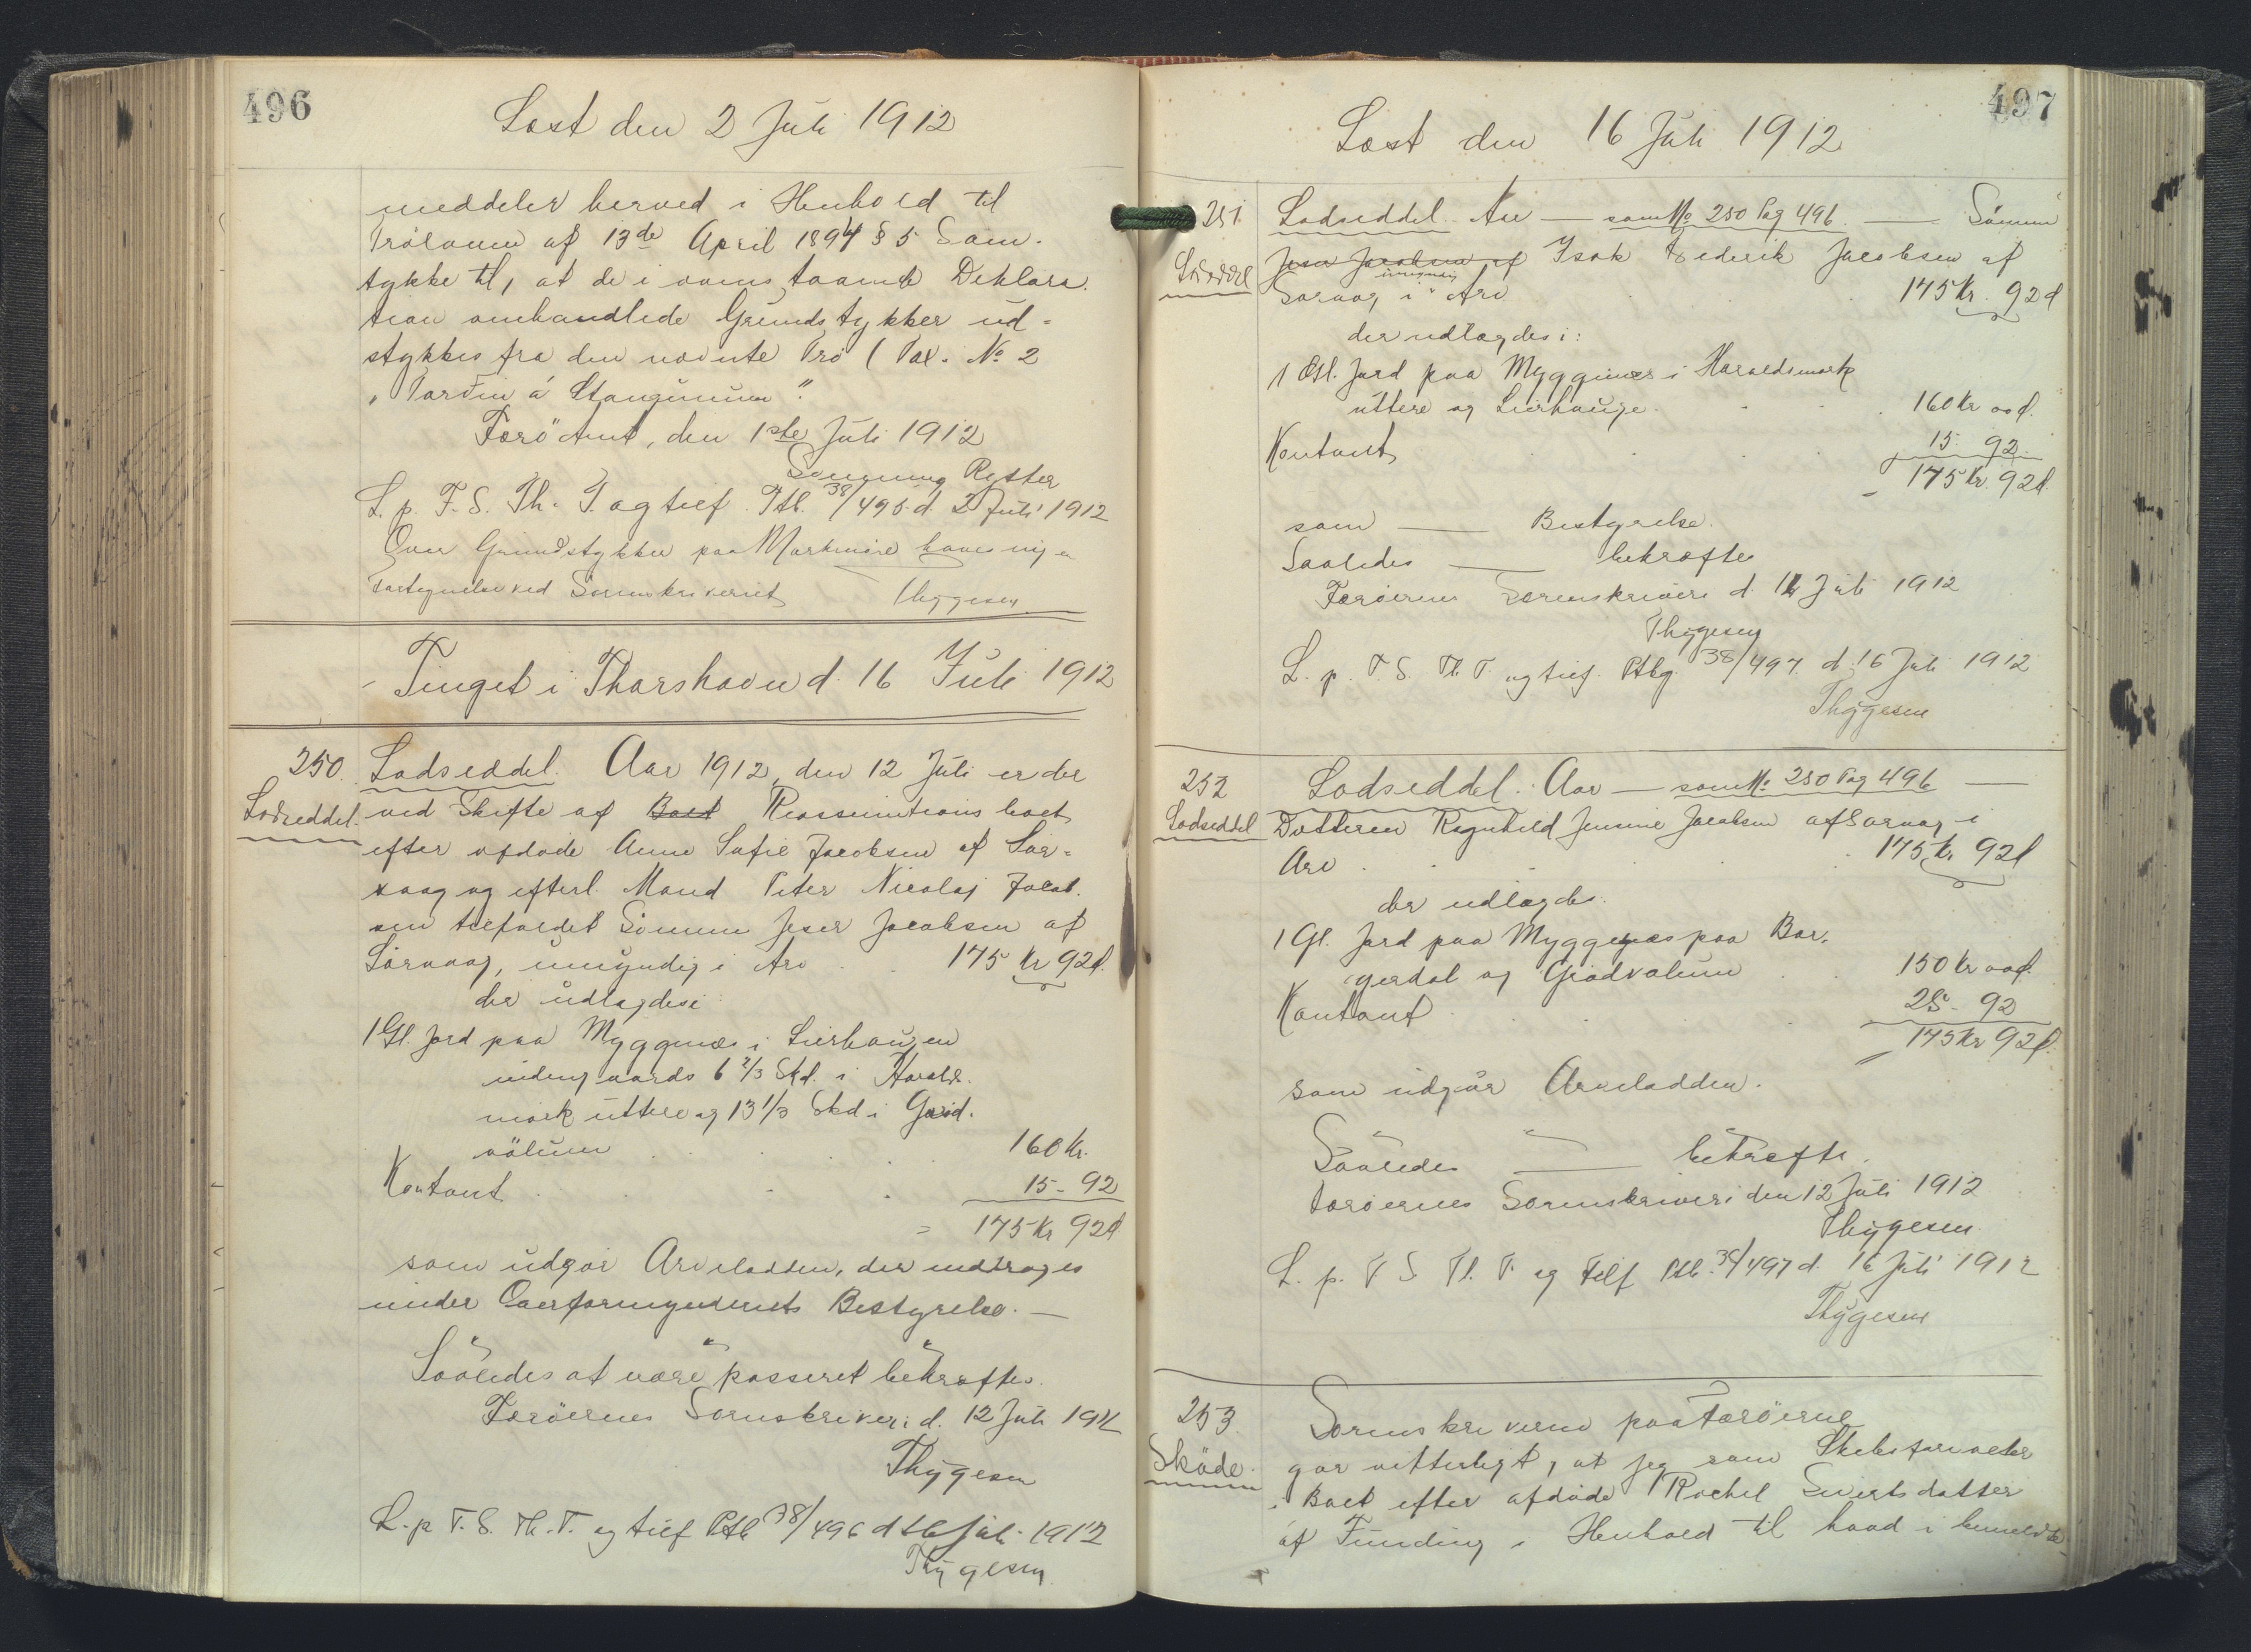 496
Læst den 2 Juli 1912
meddeler herved i Henhold til
Prøloven af 13de April 1894 § 5 Sam-
tykke til, at de i ovenstaaende Deklara-
tion omhandlede Grundstykker ud=
stykkes fra den nævnte Prø (Pal. No 2
"Garðin á Stongunum".
Færø Amt, den 1ste Juli 1912
Rytter
L. p. F. S. Th. T. og tilf. Ptb. 38/495 d. 2 Juli 1912
Over Grundstykker paa Markerne haves ingen
Fortegnelse ved Sorenskriveriet Thygesen
Tinget i Thorshavn d. 16 Juli 1912
250. Lodseddel. Aar 1912, den 12 Juli er der
Lodseddel. ved Skifte af Boet Reassumtions boet
efter afdøde Anne Sofie Jacobsen af Sør=
vaag og efterl. Mand Peter Nicolaj Jacob-
sen tilfaldet Sønnen Jeser Jacobsen af
Sørvaag, umyndig i Arv 175 Kr 92 d.
der udlagdes i:
1 Gl. Jord paa Myggenæs i Lierhaugen
indengaards 6 2/3 Skd. i Haralds-
mark uttere og 13 1/3 Skd i Gisid-
völum 160 Kr.
Kontant 15 - 92
= 175 Kr 92 d
som udgør Arvelodden, der inddrages
under Overformynderiets Bestyrelse. —
Saaledes at være passeret bekræftes.
Færøernes Sorenskriveri d. 12 Juli 1912
Thygesen
L. p. F. S. Th. T. og tilf Ptb 38/496 d 16 Juli 1912
Thygesen
497
Læst den 16 Juli 1912
251. Lodseddel. Aar — som No 250 Pag 496. — Sønnen
Lodseddel Jeser Jacobsen af Isak Frederik Jacobsen af
umyndig
Sørvaag i Arv 175 Kr. 92 d
der udlagdes i:
1 Gl. Jord paa Myggenæs i Haraldsmark
uttere og Lierhauge. 160 Kr 00 d.
Kontant 15 - 92
175 Kr. 92 d.
som — Bestyrelse.
Saaledes — bekræftes
Færøernes Sorenskriveri d. 12 Juli 1912
Thygesen
L. p. F. S. Th. T. og tilf. Ptbg. 38/497. d. 16 Juli 1912
Thygesen
252 Lodseddel. Aar — som No 250 Pag 496 —
Lodseddel Datteren Ragnhild Jensine Jacobsen af Sørvaag i
Arv 175 Kr. 92 d
der udlagdes.
1 Gl. Jord paa Myggenæs paa Bor-
gerdal og Giodvalum 150 Kr 00 d.
Kontant 25 - 92
175 Kr 92 d.
som udgør Arvelodden.
Saaledes — bekræftes.
Færøernes Sorenskriveri den 12 Juli 1912
Thygesen
L. p. F. S. Th. T. og tilf Ptb. 38/497 d. 16 Juli 1912
Thygesen
253. Sorenskriveren paa Færøerne
Skøde. gør vitterligt, at jeg som Skifteforvalter
i Boet efter afdøde Rachel Sivertsdatter
af Funding i Henhold til hvad i bemeldte